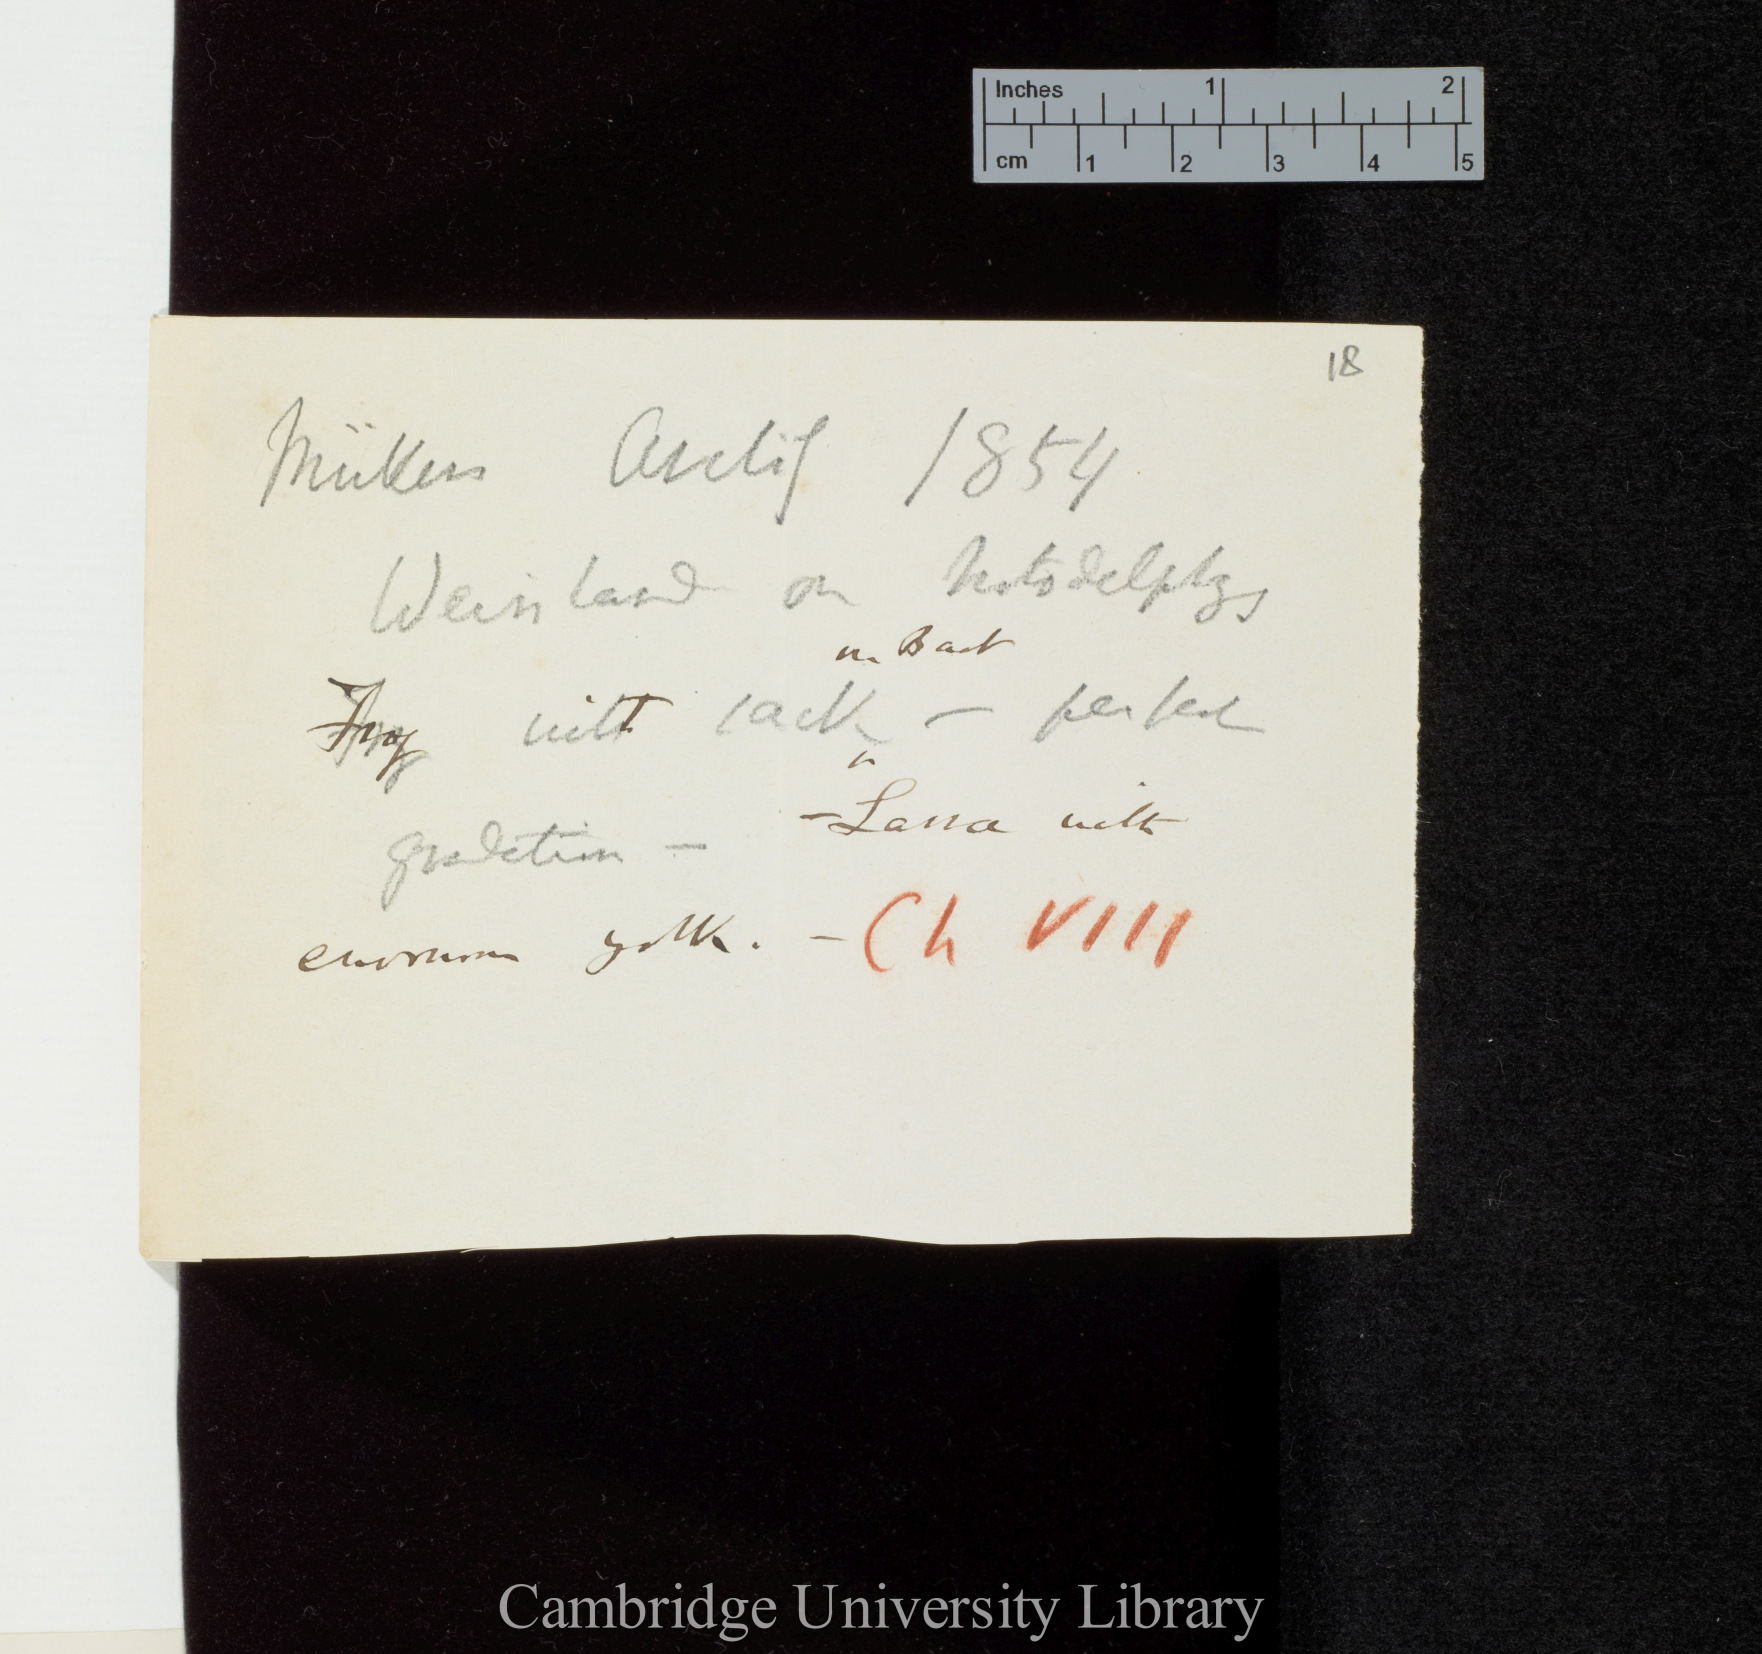 Inches 1 2
cm 1 2 3 4 5
18
Müllers Archif 1854
Weinland on Notodelphys
on Back
Frog with sack – perfect
^
gradation – – Larva with
enormous yolk. – Ch VIII
Cambridge University Library